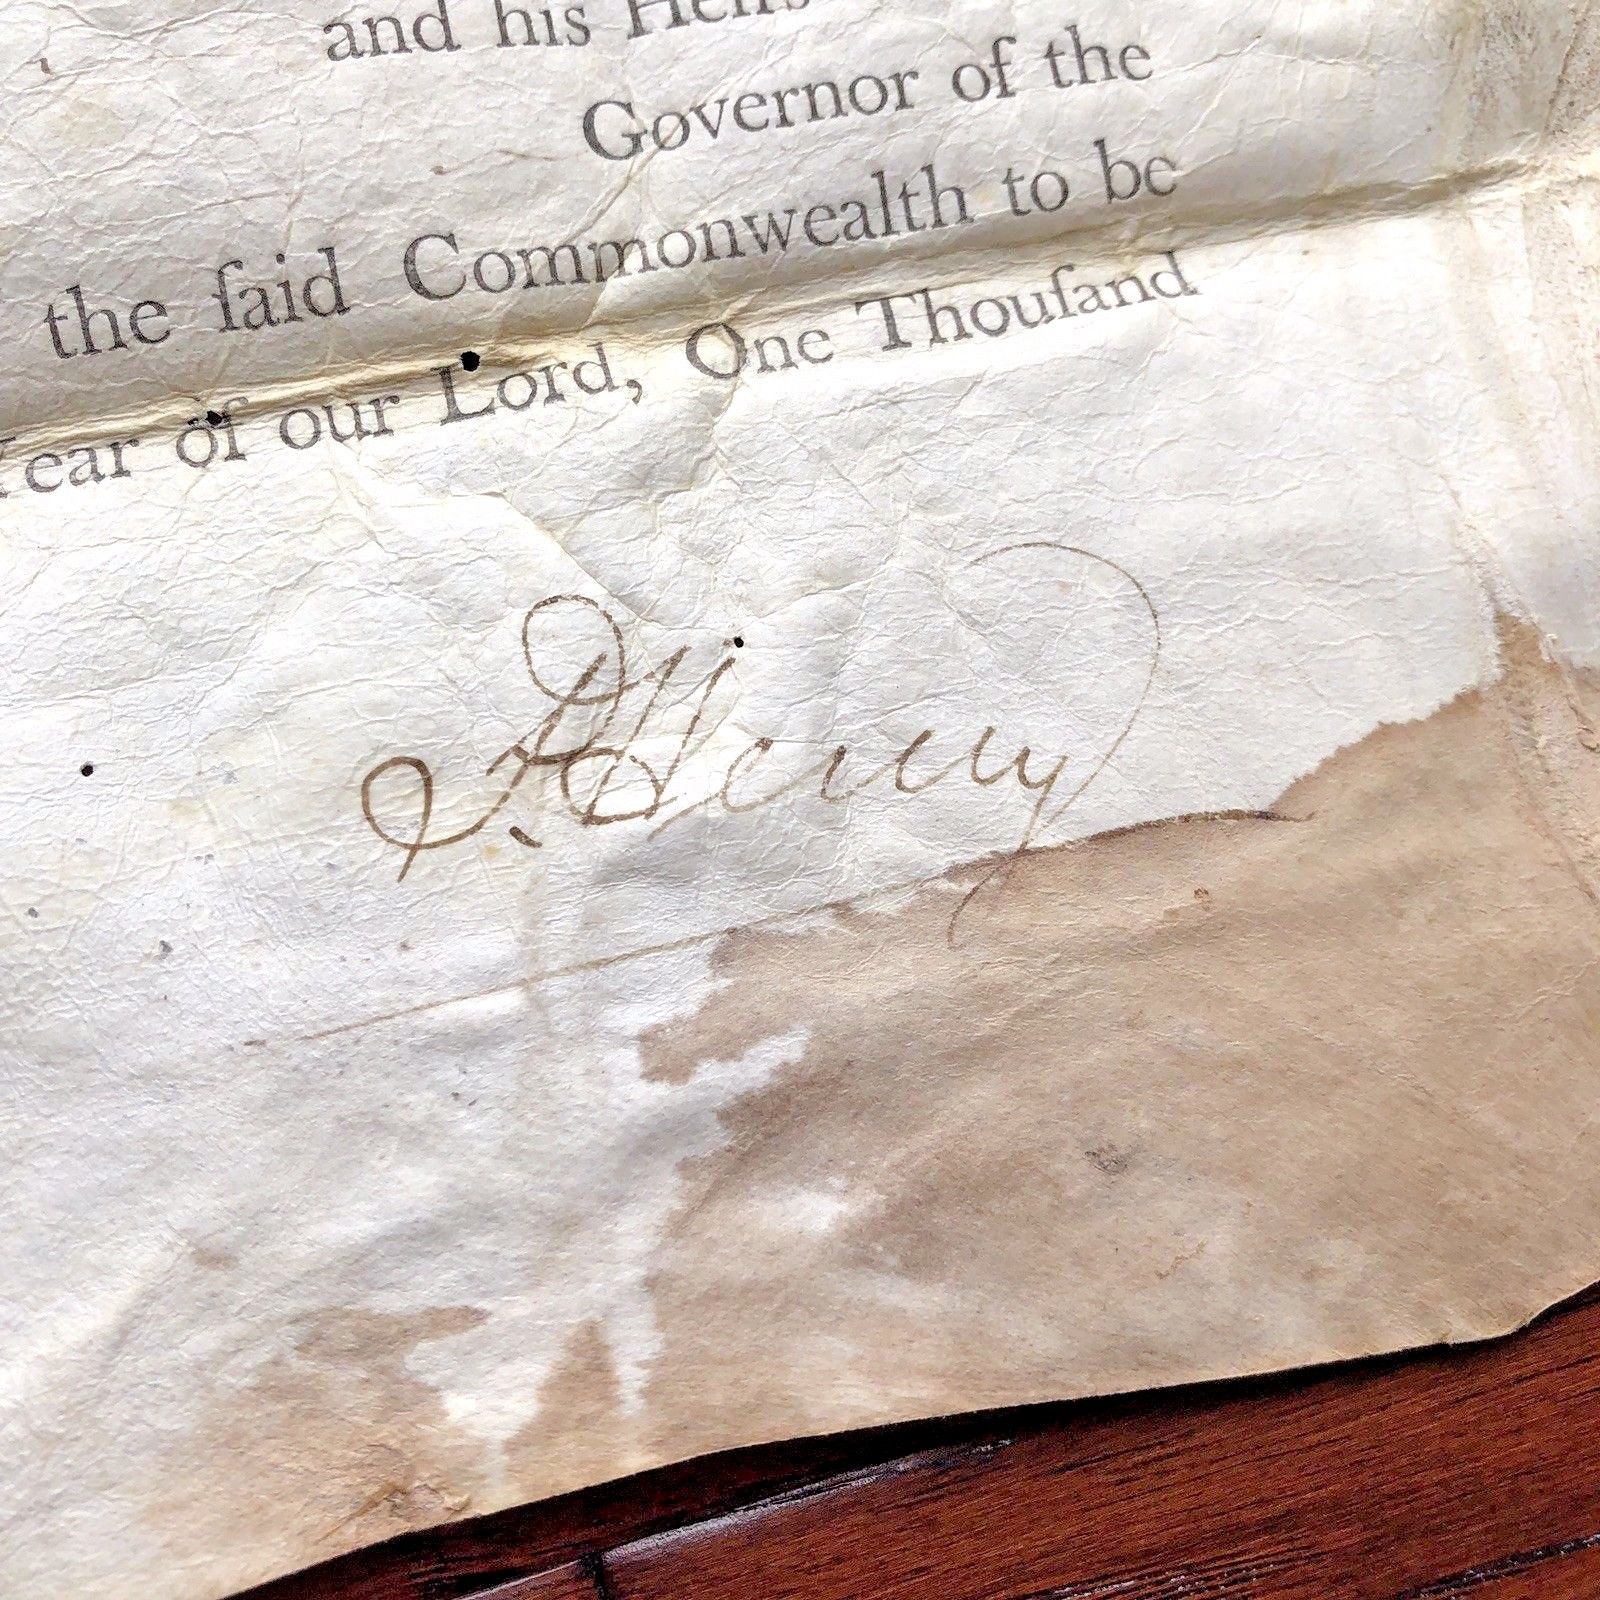 and his Heirs
Governor of the
the ſaid Commonwealth to be
Year of our Lord, One Thouſand
P. Henry